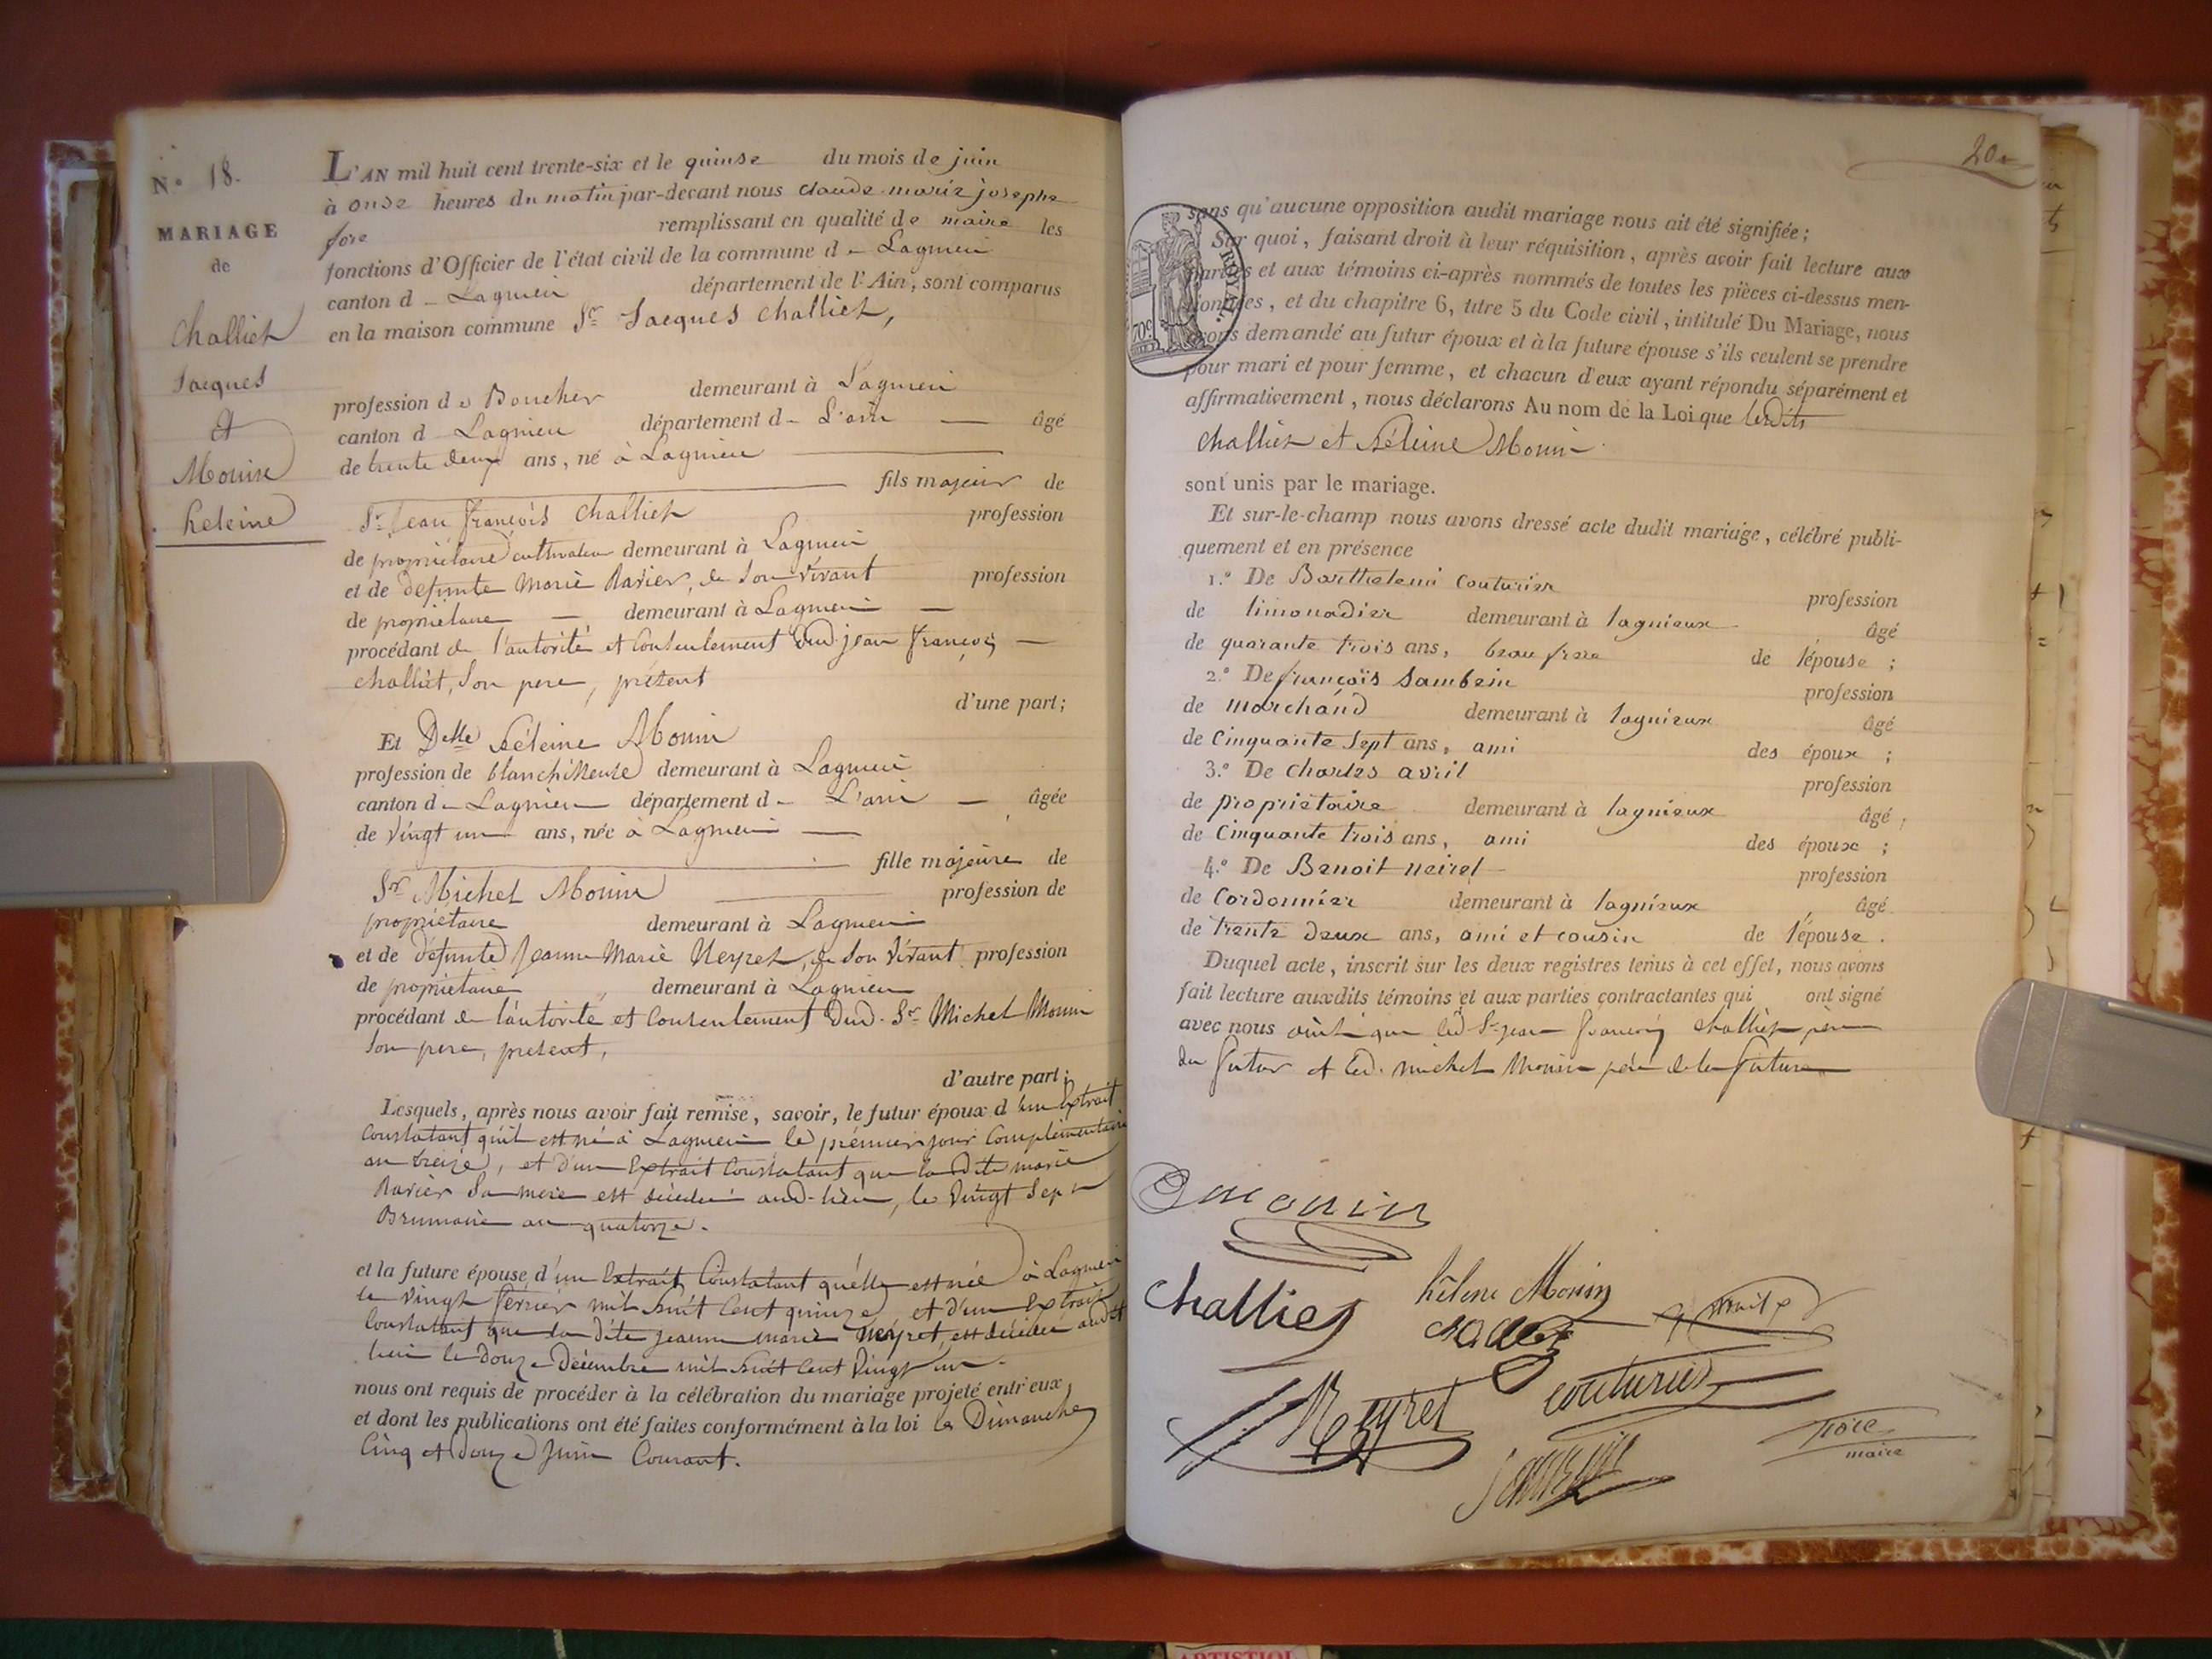 N.° 18.
MARIAGE
de
Challiet
Jacques
et
Monin
heleine
L'AN mil huit cent trente-six et le quinse du mois de juin
à onse heures du matin par-devant nous claude marie josephe
fore remplissant en qualité de maire les
fonctions d'Officier de l'état civil de la commune d - Lagnieu
canton d - Lagnieu département de l'Ain, sont comparus
en la maison commune Sr Jacques Challiet,
profession de Boucher demeurant à Lagnieu
canton d - Lagnieu département d - L'ain — âgé
de trente deux ans, né à Lagnieu
fils majeur de
Sr Jean françois Challiet profession
de propriétaire cultivateur demeurant à Lagnieu
et de defunte Marie Ravier, de son vivant profession
de propriétaire — demeurant à Lagnieu —
procédant de l'autorité et Consentement dud. jean françois —
challiet, son pere, présent
d'une part;
Et Delle héleine Monin
profession de blanchisseuse demeurant à Lagnieu
canton d - Lagnieu département d - L'ain — âgée
de vingt un ans, née à Lagnieu —
fille majeure de
Sr Michel Monin profession de
propriétaire demeurant à Lagnieu
et de défunte Jeanne Marie Neyret, de son vivant profession
de propriétaire demeurant à Lagnieu
procédant de l'autorité et Consentement dud. Sr Michel Monin
son pere, présent,
d'autre part;
Lesquels, après nous avoir fait remise, savoir, le futur époux d'un Extrait
Constatant qu'il est né à Lagnieu le premier jour Complémentaire
an treize, et d'un Extrait Constatant que la dite marie
Ravier sa mere est décédée aud. lieu, le vingt sept
Brumaire an quatorze.
et la future épouse, d'un Extrait Constatant quélle est née à Lagnieu
le vingt fevrier mil huit Cent quinze, et d'un Extrait
Constatant que la dite jeanne marie Neyret, est décédée audit
lieu le Douze Décembre mil huit Cent vingt un.
nous ont requis de procéder à la célébration du mariage projeté entr'eux,
et dont les publications ont été faites conformément à la loi les Dimanches
Cinq et douze Juin Courant.
20
ROYAL
70c
sans qu'aucune opposition audit mariage nous ait été signifiée;
Sur quoi, faisant droit à leur réquisition, après avoir fait lecture aux
parties et aux témoins ci-après nommés de toutes les pièces ci-dessus men-
tionnées, et du chapitre 6, titre 5 du Code civil, intitulé Du Mariage, nous
avons demandé au futur époux et à la future épouse s'ils veulent se prendre
pour mari et pour femme, et chacun d'eux ayant répondu séparément et
affirmativement, nous déclarons Au nom de la Loi que lesdits
challiet et héleine Monin
sont unis par le mariage.
Et sur-le-champ nous avons dressé acte dudit mariage, célébré publi-
quement et en présence
1.° De Barthelemi Couturier profession
de limonadier demeurant à lagnieux âgé
de quarante trois ans, beau frere de lépouse ;
2.° De françois Sambein profession
de marchand demeurant à lagnieux âgé
de Cinquante sept ans, ami des époux ;
3.° De charles avril profession
de propriétaire demeurant à lagnieux âgé,
de Cinquante trois ans, ami des époux ;
4.° De Benoit neiret profession
de Cordonnier demeurant à lagnieux âgé
de trente deux ans, ami et cousin de l'épouse .
Duquel acte, inscrit sur les deux registres tenus à cet effet, nous avons
fait lecture auxdits témoins et aux parties contractantes qui ont signé
avec nous ainsi que led Sr jean françois challiet père
du futur et led. michel Monin père de la future
monin
Challiet hélene Monin
Neyret couturier
fore
maire